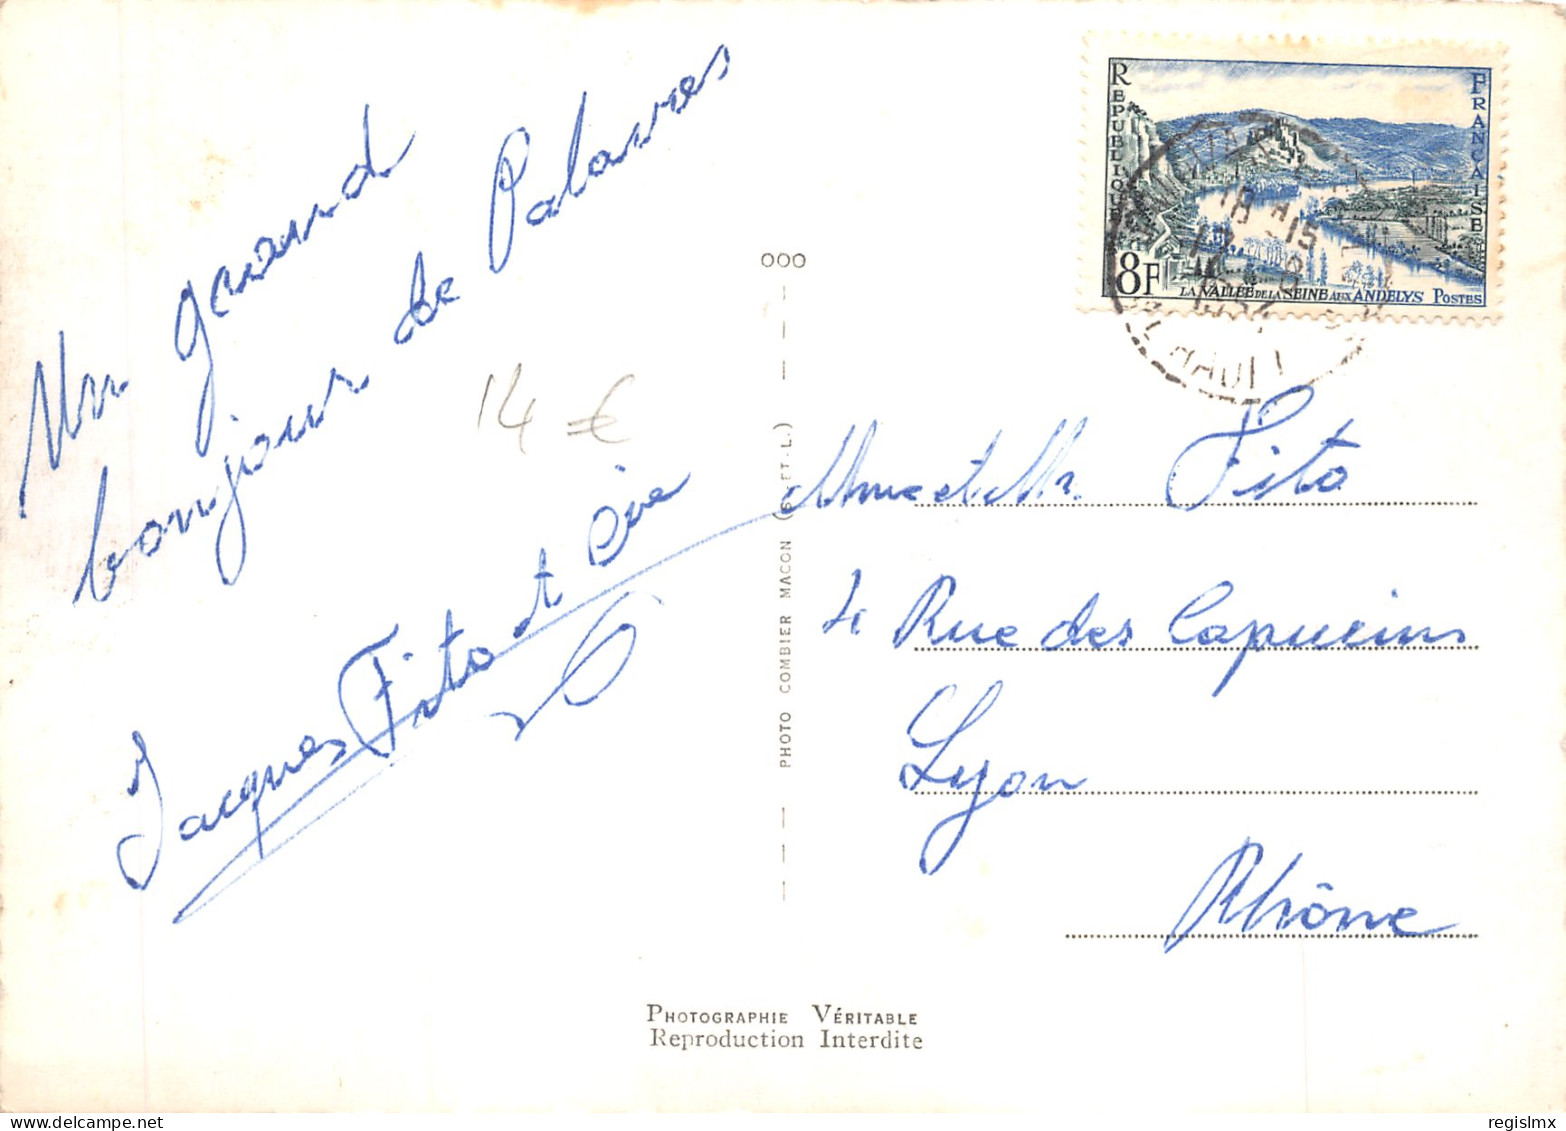 Un grand
bonjour de Palavas
Jacques Fito et
14 €
OOO
PHOTO COMBIER MACON (S.-ET-L.)
RÉPUBLIQUE FRANÇAISE
8F
LA VALLÉE DE LA SEINE AUX ANDELYS POSTES
18 H 15
1954
HÉRAULT
Mme et Mr Fito
4 Rue des Capucins
Lyon
Rhône
PHOTOGRAPHIE VÉRITABLE
Reproduction Interdite
© regislmx